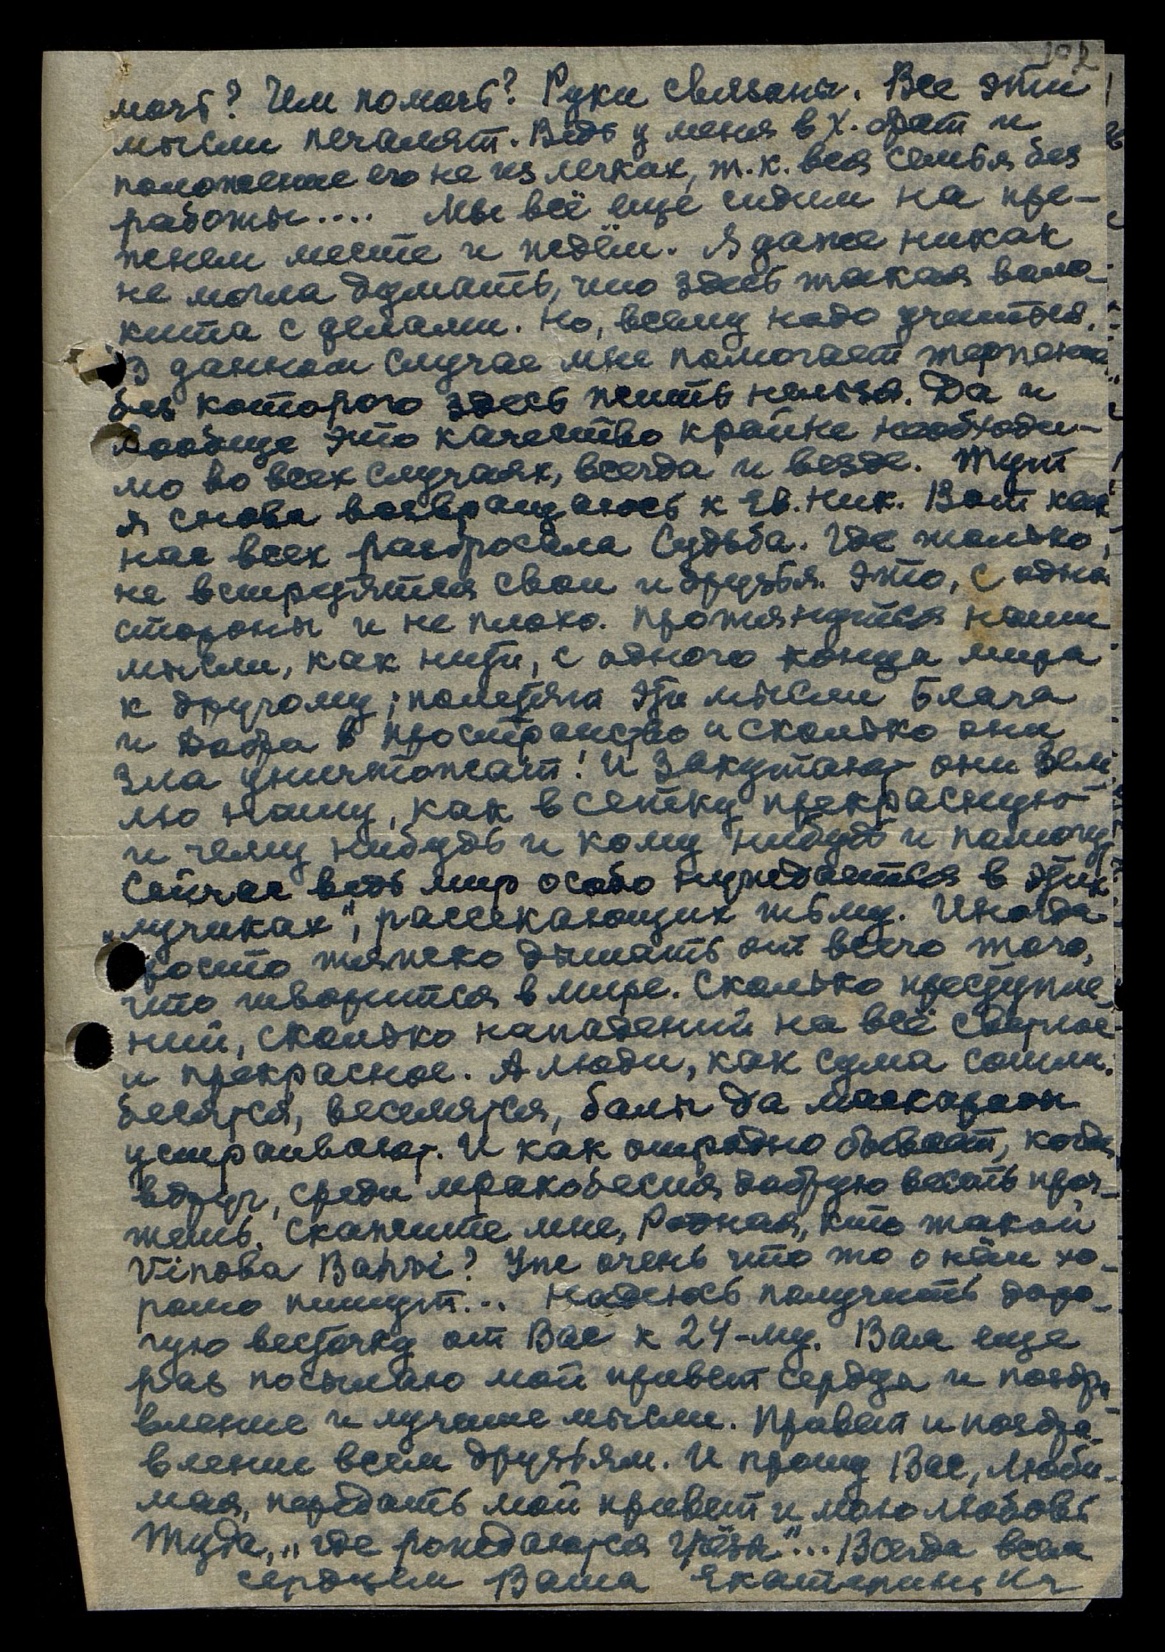 мочь? Чем помочь? Руки связаны. Все эти
мысли печалят. Ведь у меня в Х. брат и
положение его не из легких, т.к. вся семья без
работы.... Мы всё еще сидим на пре-
жнем месте и ждём. Я даже никак
не могла думать, что здесь такая воло-
кита с делами. Но, всему надо учиться.
В данном случае мне помогает терпение
без которого здесь жить нельзя. Да и
вообще это качество крайне необходи-
мо во всех случаях, всегда и везде. Тут
я снова возвращаюсь к Ев. Ник. Вот как
нас всех разбросала Судьба. Где только,
не встретятся свои и друзья. Это, с одной
стороны и не плохо. Протянутся наши
мысли, как нити, с одного конца мира
к другому; полетят эти мысли Блага
и Добра в пространство и сколько они
Зла уничтожат! И закутают они Зем-
лю нашу, как в сетку прекрасную
и чему нибудь и кому нибудь и помогут
Сейчас ведь мир особо нуждается в этих
„лучиках", рассекающих тьму. Иногда
просто тяжело дышать от всего того,
что творится в мире. Сколько преступле-
ний, сколько нападений на всё светлое
и прекрасное. А люди, как с ума сошли.
бесятся, веселятся, балы да маскарады
устраивают. И как отрадно бывает, когда
вдруг, среди мракобесия добрую весть проч-
тешь. Скажите мне, Родная, кто такой
Vinoba Bahvi? Уж очень что то о нём хо-
рошо пишут... Надеюсь получить доро-
гую весточку от Вас к 24-му. Вам еще
раз посылаю мой привет сердца и поздра-
вление и лучшие мысли. Привет и поздра-
вление всем друзьям. И прошу Вас, Люби-
мая, передать мой привет и мою любовь
Туда, „где рождаются грёзы"... Всегда всем
сердцем Ваша Екатерина